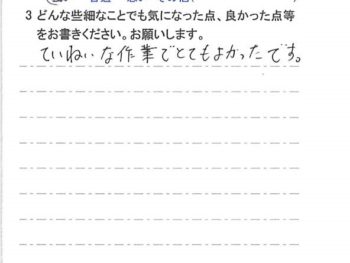 3 どんな些細なことでも気になった点、良かった点等
をお書きください。お願いします。
ていねいな作業でとてもよかったです。